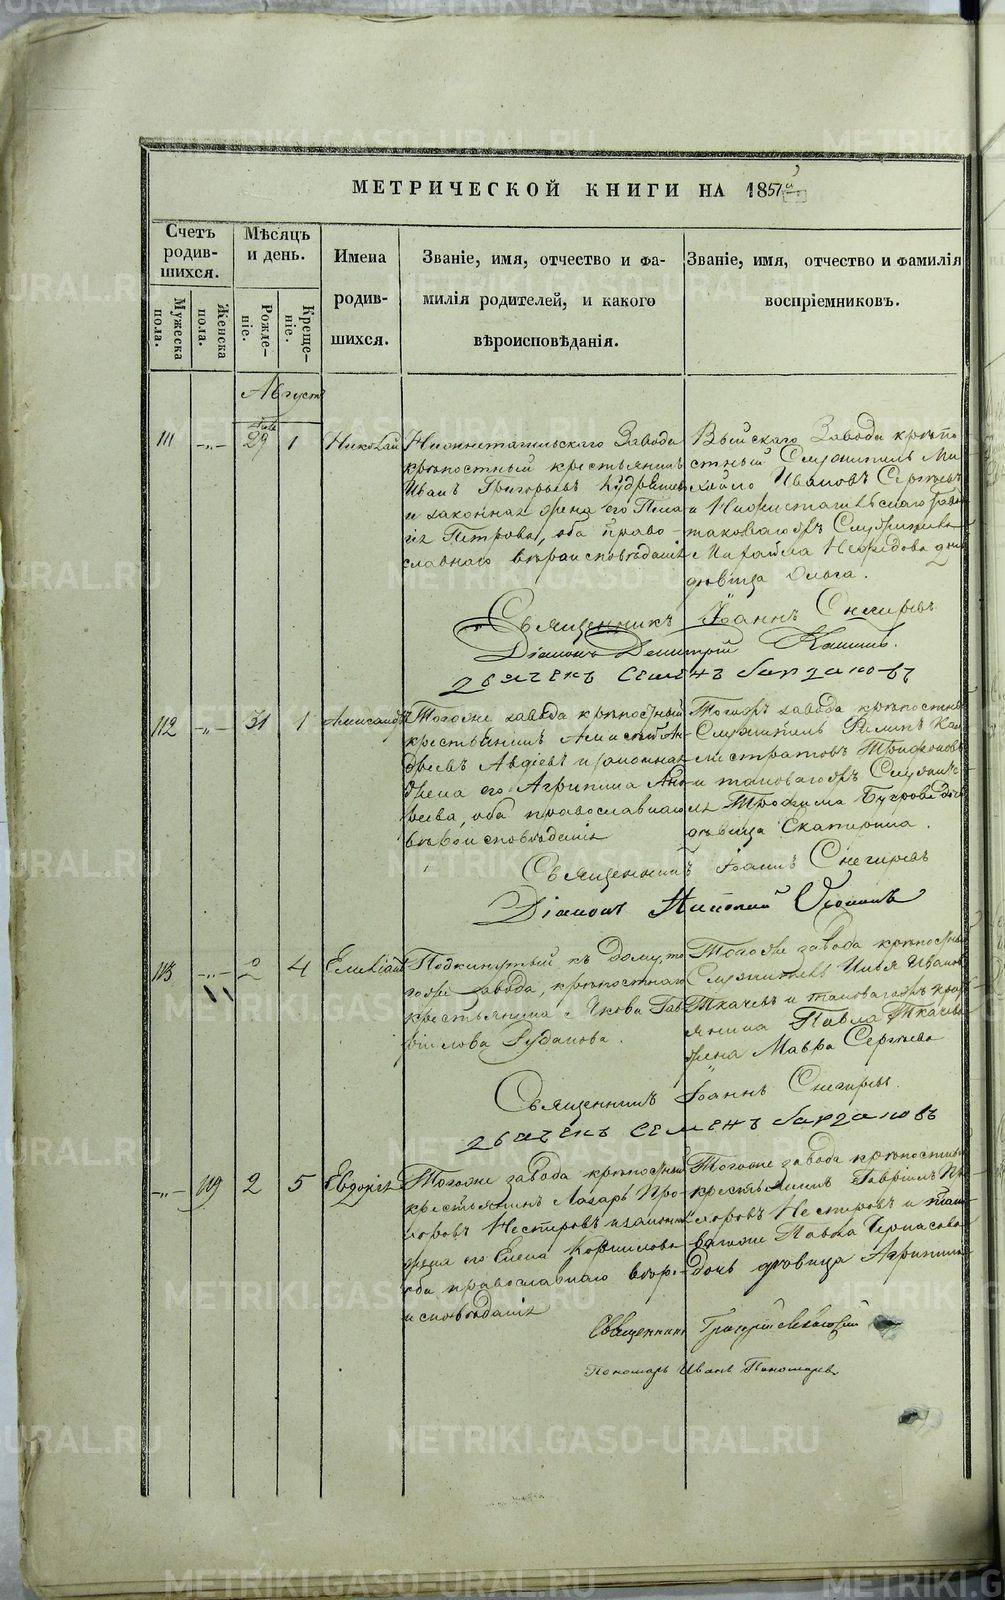 МЕТРИЧЕСКОЙ КНИГИ НА 1857й
Счетъ родив-шихся.
Мужеска пола.
Женска пола.
Мѣсяцъ и день.
Рожде-ніе.
Креще-ніе.
Имена родив-шихся.
Званіе, имя, отчество и фа-
милія родителей, и какого
вѣроисповѣданія.
Званіе, имя, отчество и фамилія
воспріемниковъ.
Августъ
111 -„- 29 1 Николай
Нижнетагильскаго Завода
крѣпостный крестьянинъ
Иванъ Григорьевъ
и законная жена его Пела
гея Петрова, оба право-
славнаго вѣроисповѣданія
Выйскаго Завода крѣпо
стный Служитель Ми
хайло Ивановъ
и Нижнетагильскаго Заво
таковагожъ Служителя
Михайла
дѣвица Ольга.
Священникъ Іоаннъ Снегиревъ
Діаконъ Димитрій
Дьячекъ Семенъ
112 -„- 31 1 Александръ
Тогоже завода крѣпостный
крестьянинъ Ан-
дреевъ Авдѣевъ и законная
жена его Агрипина
оба православнаго
вѣроисповѣданія
Тогожъ завода крѣпостный
Служитель Филипъ Кал
листратовъ Трифоновъ
и таковагожъ Служите
ля Трофима дочь
дѣвица Екатерина.
Священникъ Іоаннъ Снегиревъ
Діаконъ
113 -„- 2 4 Емеліанъ
Подкинутый къ дому, то
гоже завода, крѣпостнаго
крестьянина Якова Гав
рилова Рудакова.
Тогоже завода крѣпостный
Служитель Илья Ивановъ
Ткачевъ и таковагожъ крес
янина Павла Ткачева
жена Мавра Сергѣева
Священникъ Іоаннъ Снегиревъ.
Дьячекъ Семенъ
-„- 109 2 5 Евдокія
Тогоже завода крѣпостный
крестьянинъ Лазарь Про-
хоровъ Нестеровъ и законная
жена его Елена Корнилова
оба православнаго вѣро-
исповѣданія
Тогоже завода крѣпостный
крестьянинъ Гавріилъ Про
хоровъ Нестеровъ и тако
вагоже Павла Черкасова
дочь дѣвица Агрипина
Священникъ Григорій
Пономарь Иванъ Пономаревъ
METRIKI.GASO-URAL.RU